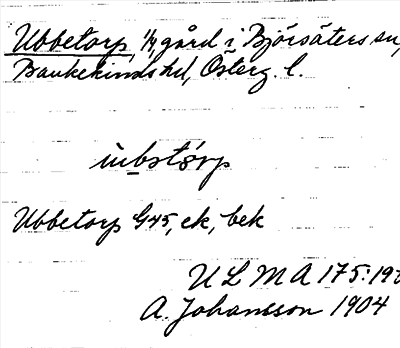 Ubbetorp, 1/4, gård i Björsäters sn,
Bankekinds hd, Österg. l.
ùbstórp
Ubbetorp G45, ek, bek
ULMA 175:19
A. Johansson 1904